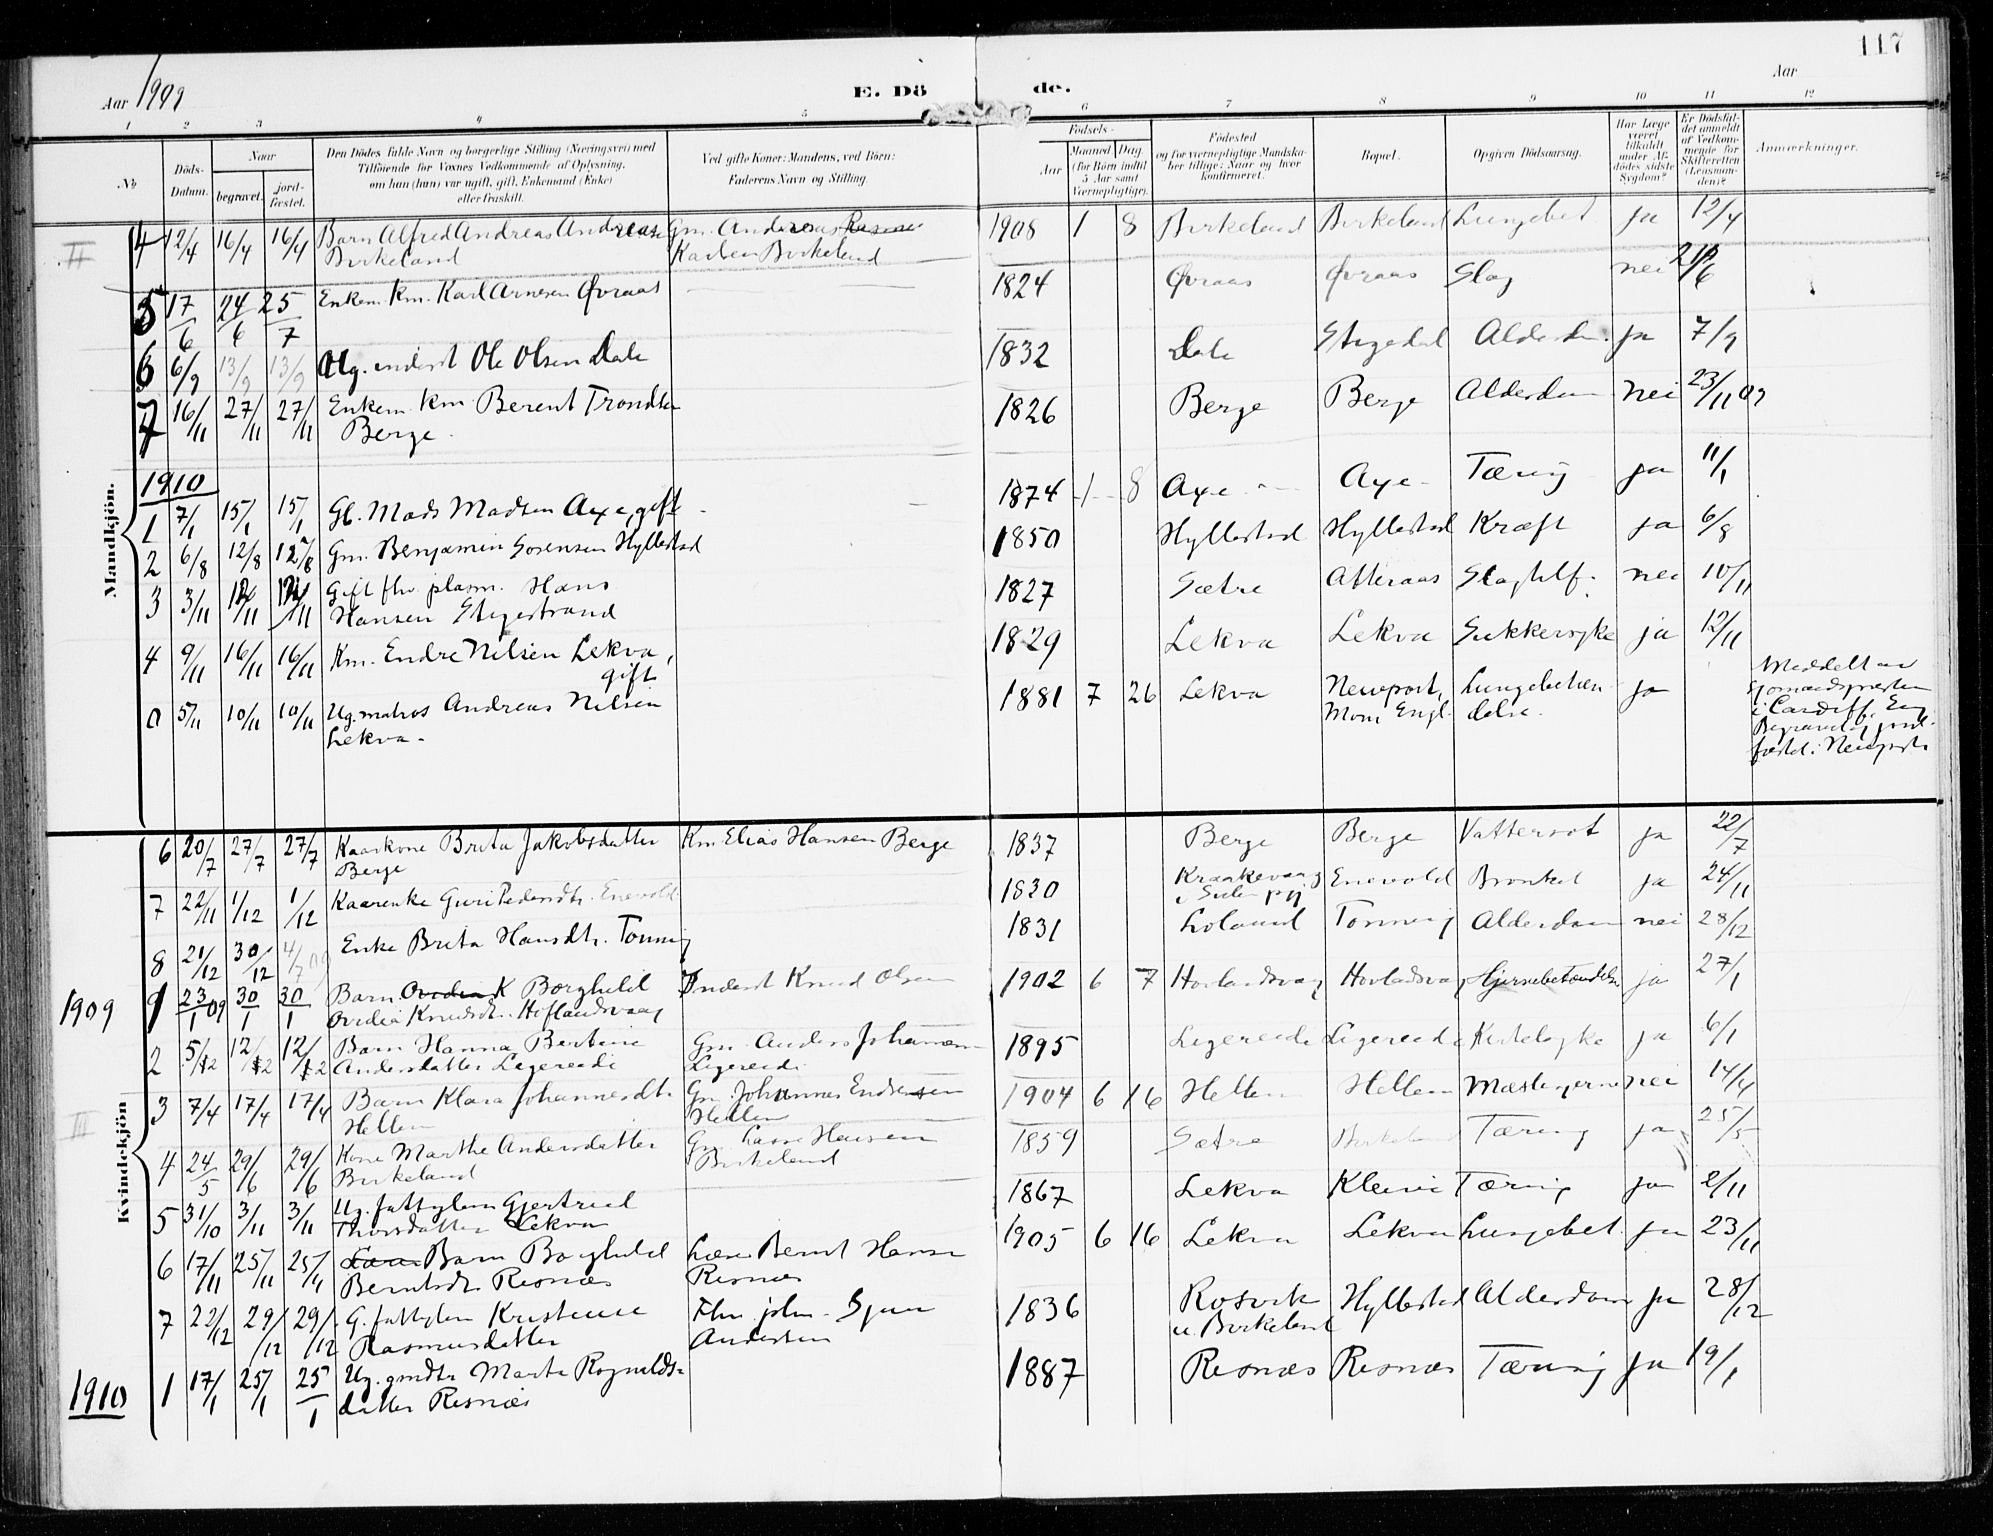 117
Aar 1909
E. Dö de.
Aar
1 2 3 4 5 6 7 8 9 10 11 12
No
Döds-Datum.
Naar
begravet.
jord-fæstet.
Den Dödes fulde Navn og borgerlige Stilling (Næringsvei) med
Tilföiende for Voxnes Vedkommende af Oplysning,
om han (hun) var ugift, gift, Enkemand (Enke)
eller fraskilt.
Ved gifte Koner: Mandens, ved Börn:
Faderens Navn og Stilling.
Födsels-
Aar
Maaned
Dag.
(for Börn indtil
5 Aar samt
Værnepligtige).
Födested
og for værnepligtige Mandska-
ber tillige: Naar og hvor
konfirmeret.
Bopæl.
Opgiven Dödsaarsag.
Har Læge
været
tilkaldt
under Af-
dödes sidste
Sygdom?
Er Dödsfal-
det anmeldt
af Vedkom-
mende for
Skifteretten
(Lensman-
den)?
Anmærkninger.
Mandkjön.
II
4 12/4 16/4 16/4 Barn Alfred Andreas Andreasen Gm. Andreas 1908 1 8 Birkeland Birkeland Lungebet ja 12/4
Birkeland Karlsen Birkeland
5 17/6 24/6 25/7 Enkem. Km. Karl Arnesen Øvraas 1824 Øvraas Øvraas Slag nei 21/6
6 6/9 13/9 13/9 Ug. inderst Ole Olsen Dale 1832 Dale Stigedal Alderdom. ja 7/9
7 16/11 27/11 27/11 Enkem. Km Berent Trondsen 1826 Berge Berge Alderdom nei 23/11 09
Berge.
1910
1 7/1 15/1 15/1 Gb. Mads Madsen Axe, gift 1874 1 8 Axe Axe Tæring ja 11/1
2 6/8 12/8 12/8 Gm. Benjamin Sorensen Hyllestad 1850 Hyllestad Hyllestad Kræft ja 6/8
3 3/11 12/11 12/11 Gift fhv. plasm. Hans 1827 Sætre Atteraas Slagtilf. nei 10/11
Hansen Stigestrand
4 9/11 16/11 16/11 Km. Endre Nilsen Lekva, 1829 Lekva Lekva Sukkersyke ja 12/11
gift
0 5/11 10/11 10/11 Ug. matros Andreas Nilsen 1881 7 26 Lekva Newport, Lungebetæn- ja
Lekva. Mon Engl. delse.
Meddelt av
sjomandspresten
i Cardiff, Eng
Begravet og jord-
fæstet i Newport
Kvindekjön
6 20/7 27/7 27/7 Kaarkone Brita Jakobsdatter Km Elias Hansen Berge 1837 Berge Berge Vattersot ja 22/7
Berge
7 22/11 1/12 1/12 Kaarenke Guri Pedersdtr. Enevold 1830 Kraakevaag Enevold Bronkit ja 24/11
i Sulen pgj
8 21/12 30/12 4/7 09 Enke Brita Hansdtr. Tonning 1831 Loland Tonning Alderdom nei 28/12
1909
1 23/1 09 30/1 30/1 Barn Ovidia K Borghild Inderst Knud Olsen 1902 6 7 Hovlandsvag Hovlandsvag Hjernebetændelse ja 27/1
Ovidia Knudsdtr. Hoflandsvaag
2 5/12 12/12 12/12 Barn Hanna Bertine Gm. Anders Johannesen 1895 Ligereide Ligereide Kirtelsyke ja 6/1
Andersdatter Ligereide Ligereide
III
3 7/4 17/4 17/4 Barn Klara Johannesdtr. Gm. Johannes Endresen 1904 6 16 Hellen Hellen nei 14/4
Hellen Hellen
4 24/5 29/6 29/6 Kone Marthe Andersdatter Gm Lasse Hansen 1859 Sætre Birkeland Tæring ja 25/5
Birkeland Birkeland
5 31/10 3/11 3/11 Ug. fattiglem Gjertrud 1867 Lekva Kleivi Tæring ja 2/11
Thorsdatter Lekva
6 17/11 25/11 25/11 Barn Borghild Læser Bernt Hansen 1905 6 16 Lekva Lekva Lungebet. ja 23/11
Berntsdtr. Risnæs Risnæs
7 22/12 29/12 29/12 G. fattiglem Kristense Fhv. 1836 Rosvik Hyllestad Alderdom ja 28/12
Rasmusdatter Andersen u. Birkeland
1910
1 17/1 25/1 25/1 Ug. gmdtr. Marta Rognalds- 1887 Risnæs Risnæs Tæring ja 19/1
datter Risnæs